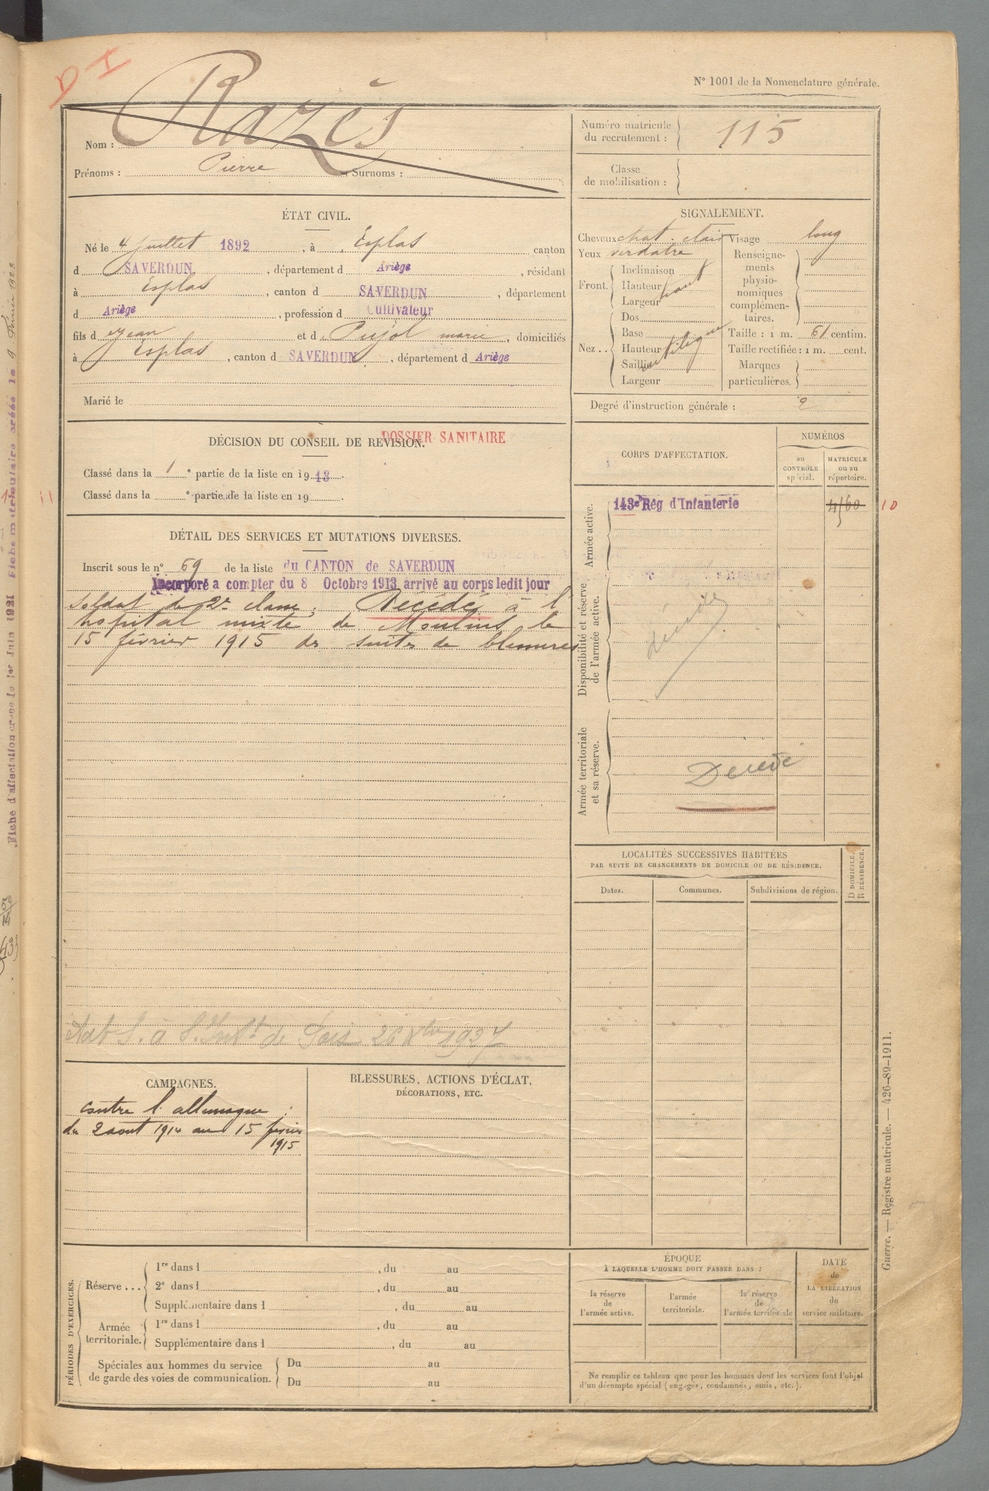 D I
N° 1001 de la Nomenclature générale.
Nom : Razès
Prénoms : Pierre Surnoms :
Numéro matricule du recrutement : 115
Classe de mobilisation :
ÉTAT CIVIL.
Né le 4 juillet 1892, à Esplas canton
d SAVERDUN, département d Ariège, résidant
à Esplas, canton d SAVERDUN, département
d Ariège, profession d Cultivateur
fils d Jean et d Pujol marie, domiciliés
à Esplas, canton d SAVERDUN, département d Ariège
Marié le
SIGNALEMENT.
Cheveux chat. clair Visage long
Yeux verdatre
Front. Inclinaison
Hauteur haut
Largeur
Nez .. Dos
Base
Hauteur
Saillie
Largeur
Renseignements physionomiques complémentaires.
Taille : 1 m. 61 centim.
Taille rectifiée : 1 m. cent.
Marques particulières.
Degré d'instruction générale : 2
DÉCISION DU CONSEIL DE REVISION.
DOSSIER SANITAIRE
Classé dans la 1e partie de la liste en 1913.
Classé dans la e partie de la liste en 19
CORPS D'AFFECTATION.
NUMÉROS
au CONTRÔLE spécial.
MATRICULE ou au répertoire.
Armée active.
143e Rég d'Infanterie
4160
10
Disponibilité et réserve de l'armée active.
décédé
Armée territoriale et sa réserve.
Decede
DÉTAIL DES SERVICES ET MUTATIONS DIVERSES.
Inscrit sous le n° 69 de la liste du CANTON de SAVERDUN
Incorporé a compter du 8 Octobre 1913 arrivé au corps ledit jour
Soldat de 2e classe, Décédé à l
hopital mixte de Moulins le
15 février 1915 des suites de blessures
26 1937
LOCALITÉS SUCCESSIVES HABITÉES
PAR SUITE DE CHANGEMENTS DE DOMICILE OU DE RÉSIDENCE.
Dates.
Communes.
Subdivisions de région.
D DOMICILE. R RÉSIDENCE.
CAMPAGNES.
contre l'allemagne :
du 2 aout 1914 au 15 février
1915
BLESSURES, ACTIONS D'ÉCLAT,
DÉCORATIONS, ETC.
PÉRIODES D'EXERCICES.
Réserve ... 1re dans l , du au
2e dans l , du au
Supplémentaire dans l , du au
Armée territoriale. 1re dans l , du au
Supplémentaire dans l , du au
Spéciales aux hommes du service de garde des voies de communication. Du au
Du au
ÉPOQUE
À LAQUELLE L'HOMME DOIT PASSER DANS :
la réserve de l'armée active.
l'armée territoriale.
la réserve de l'armée territoriale
DATE de LA LIBÉRATION du service militaire.
Ne remplir ce tableau que pour les hommes dont les services font l'objet
d'un décompte spécial (engagés, condamnés, omis, etc.).
Guerre. — Registre matricule. — 426-89-1911.